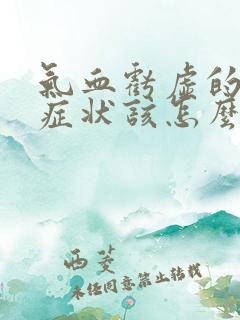 氣血虧虛的
症狀該怎麼
西菱
未经同意禁止转载